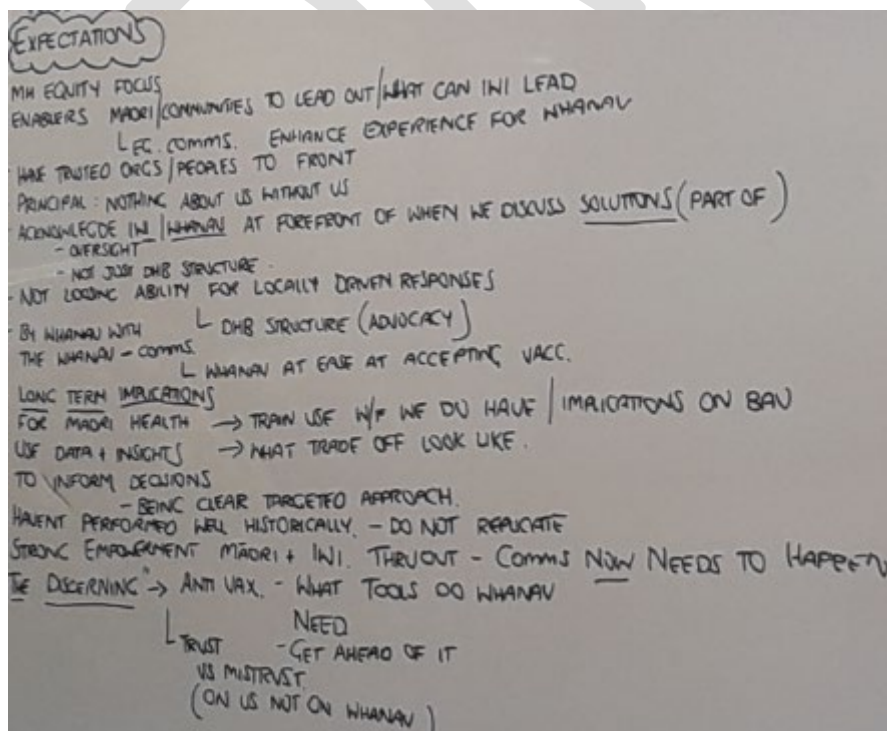 EXPECTATIONS
MH EQUITY FOCUS
ENABLERS MAORI/COMMUNITIES TO LEAD OUT/WHAT CAN IWI LEAD
EG. COMMS. ENHANCE EXPERIENCE FOR WHANAU
HAVE TRUSTED ORGS/PEOPLES TO FRONT
PRINCIPAL: NOTHING ABOUT US WITHOUT US
ACKNOWLEGDE IWI/WHANAU AT FOREFRONT OF WHEN WE DISCUSS SOLUTIONS (PART OF)
- OVERSIGHT
- NOT JUST DHB STRUCTURE.
- NOT LOOSING ABILITY FOR LOCALLY DRIVEN RESPONSES
DHB STRUCTURE (ADVOCACY)
- BY WHANAU WITH
THE WHANAU - COMMS.
WHANAU AT EASE AT ACCEPTING VACC.
LONG TERM IMPLICATIONS
FOR MAORI HEALTH → TRAIN USE W/F WE DO HAVE / IMPLICATIONS ON BAU
USE DATA + INSIGHTS → WHAT TRADE OFF LOOK LIKE.
TO INFORM DECISIONS
- BEING CLEAR TARGETED APPROACH.
HAVENT PERFORMED WELL HISTORICALLY. - DO NOT REPLICATE
STRONG EMPOWERMENT MĀORI + IWI. THRUOUT - COMMS NOW NEEDS TO HAPPEN
THE DISCERNING" → ANTI VAX. - WHAT TOOLS DO WHANAU
NEED
TRUST - GET AHEAD OF IT
VS MISTRUST.
(ON US NOT ON WHANAU)